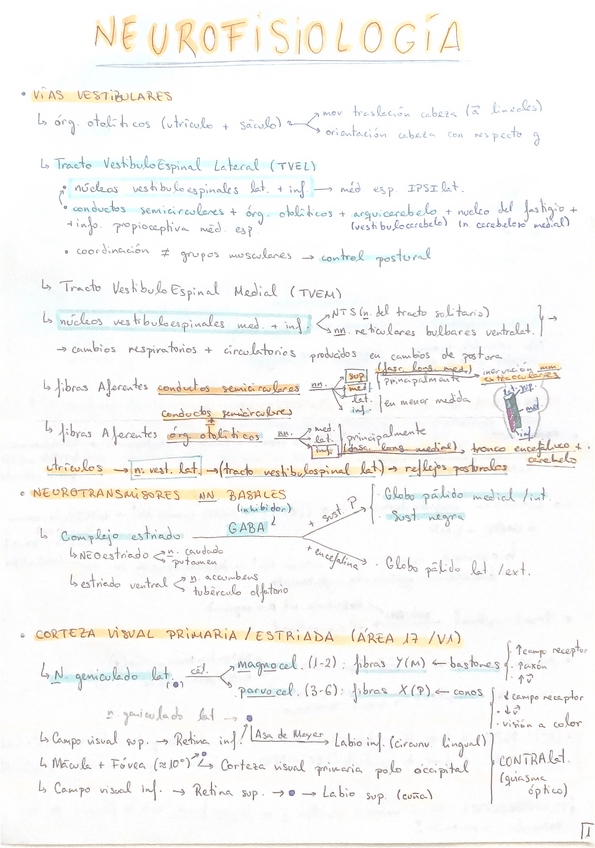 NEUROFISIOLOGÍA
• VÍAS VESTIBULARES
↳ órg. otolíticos (utrículo + sáculo)
mov traslación cabeza (a lineales)
orientación cabeza con respecto g
↳ Tracto VestíbuloEspinal Lateral (TVEL)
• núcleos vestibuloespinales lat. + inf. → méd esp. IPSIlat.
• conductos semicirculares + órg. otolíticos + arquicerebelo + nucleo del fastigio +
+ info. propioceptiva med. esp (vestibulocerebelo) (n. cerebeloso medial)
• coordinación ≠ grupos musculares → control postural
↳ Tracto VestíbuloEspinal Medial (TVEM)
↳ núcleos vestibuloespinales med. + inf.
NTS (n. del tracto solitario)
nn. reticulares bulbares ventrolat. →
→ cambios respiratorios + circulatorios producidos en cambios de postura
↳ fibras Aferentes conductos semicirculares nn.
sup
med.
principalmente
(fasc. long. med.) inervación mm. extraoculares
lat.
inf.
en menor medida
conductos semicirculares
+
↳ fibras Aferentes órg. otolíticos nn.
med.
lat.
inf.
principalmente
(fasc. long. medial) tronco encefálico + cerebelo
lat
sup
med
inf
utrículos → n. vest. lat. → (tracto vestibulospinal lat) → reflejos posturales
• NEUROTRANSMISORES NN. BASALES
(inhibidor)
↳ Complejo estriado GABA
+ sust. P
• Globo pálido medial /int.
• Sust negra
+ encefalina
• Globo pálido lat. /ext.
↳ NEOestriado
n. caudado
putamen
↳ estriado ventral
n. accumbens
tubérculo olfatorio
• CORTEZA VISUAL PRIMARIA / ESTRIADA (ÁREA 17 / V1)
↳ N. geniculado lat. cél.
magnocel. (1-2) : fibras Y(M) ← bastones
↑campo receptor
• ↑axón
• ↑v
parvocel. (3-6) : fibras X(P) ← conos
• ↓campo receptor
• ↓v
• visión a color
n geniculado lat →
↳ Campo visual sup. → Retina inf. Asa de Meyer Labio inf. (circunv. lingual)
↳ Mácula + Fóvea (≈10°) ↳ Corteza visual primaria polo occipital
↳ Campo visual inf. → Retina sup. → • → Labio sup. (cuña)
CONTRAlat.
(quiasma óptico)
1